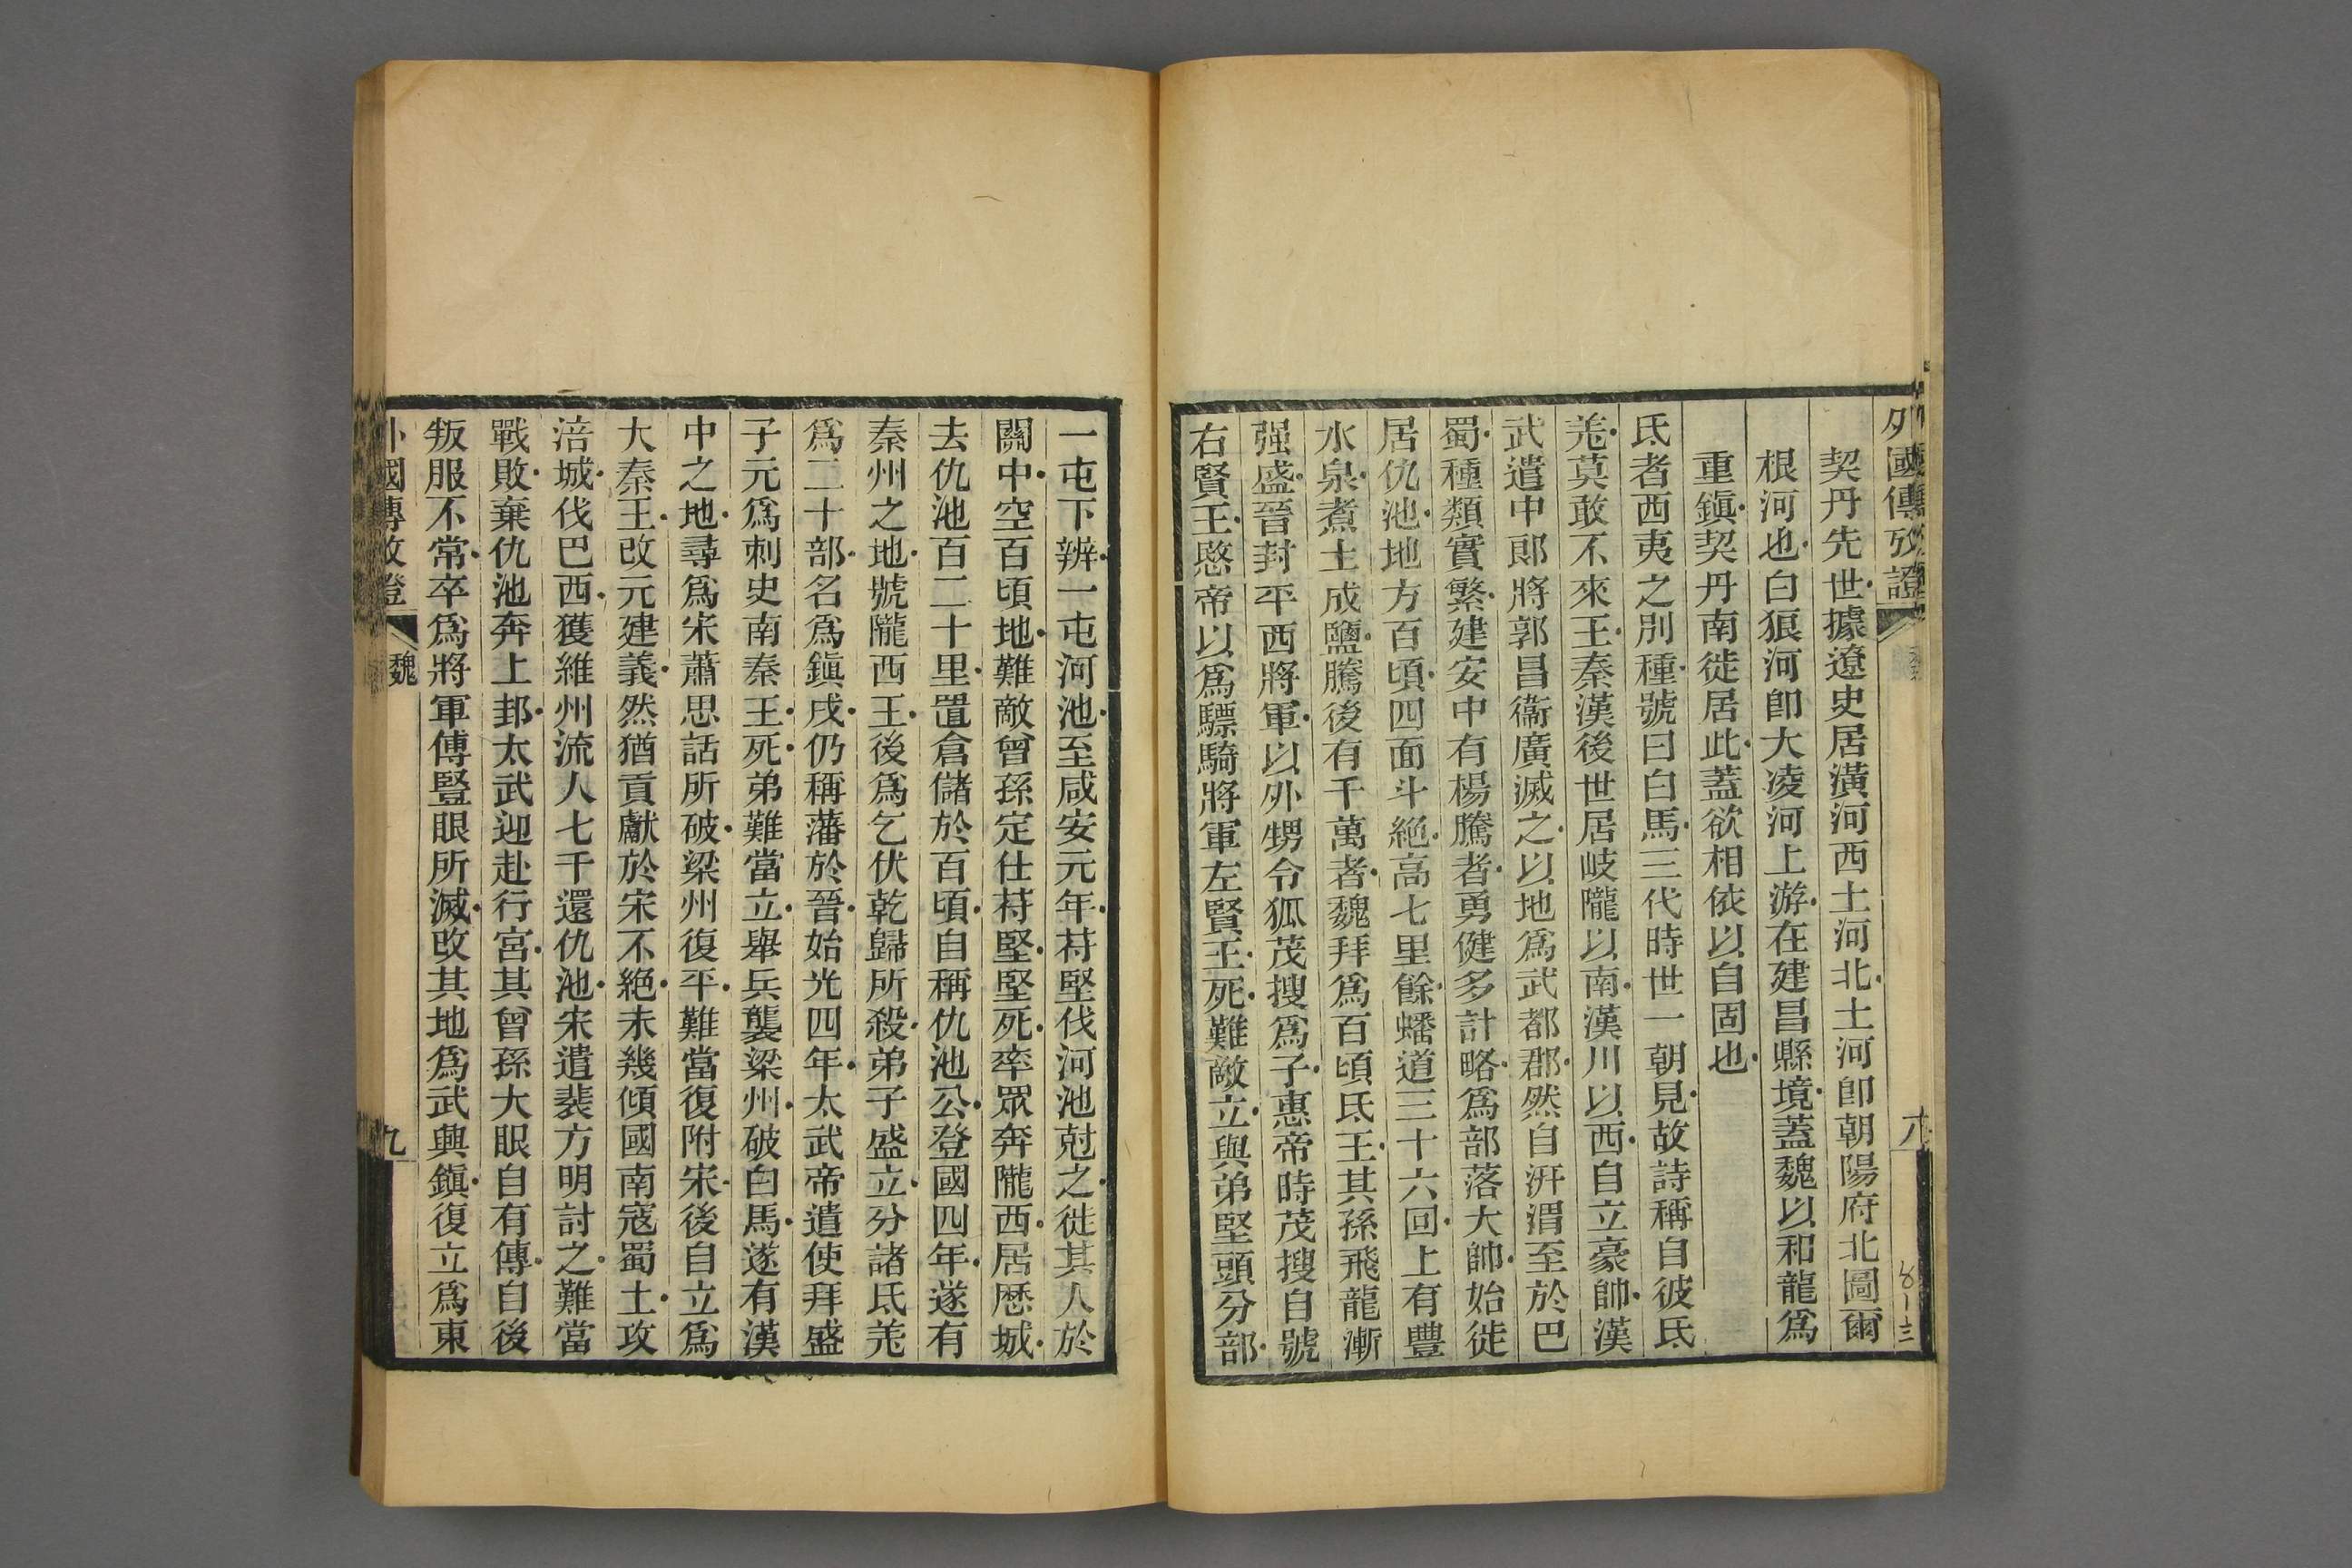 外國傳攷證
契丹先世據遼史居潢河西土河北土河卽朝陽府北圖爾
根河也白狼河卽大凌河上游在建昌縣境蓋魏以和龍爲
重鎭契丹南徙居此蓋欲相依以自固也
氐者西夷之別種號曰白馬三代時世一朝見故詩稱自彼氐
羌莫敢不來王秦漢後世居岐隴以南漢川以西自立豪帥漢
武遣中郞將郭昌衞廣滅之以地爲武都郡然自汧渭至於巴
蜀種類實繁建安中有楊騰者勇健多計略爲部落大帥始徙
居仇池地方百頃四面斗絕高七里餘蟠道三十六回上有豐
水泉煮土成鹽騰後有千萬者魏拜爲百頃氐王其孫飛龍漸
强盛晉封平西將軍以外甥令狐茂搜爲子惠帝時茂搜自號
右賢王愍帝以爲驃騎將軍左賢王死難敵立與弟堅頭分部
一屯下辨一屯河池至咸安元年苻堅伐河池尅之徙其人於
關中空百頃地難敵曾孫定仕苻堅堅死率眾奔隴西居歷城
去仇池百二十里置倉儲於百頃自稱仇池公登國四年遂有
秦州之地號隴西王後爲乞伏乾歸所殺弟子盛立分諸氐羌
爲二十部名爲鎭戍仍稱藩於晉始光四年太武帝遣使拜盛
子元爲刺史南秦王死弟難當立舉兵襲梁州破白馬遂有漢
中之地尋爲宋蕭思話所破梁州復平難當復附宋後自立爲
大秦王改元建義然猶貢獻於宋不絕未幾傾國南寇蜀土攻
涪城伐巴西獲維州流人七千還仇池宋遣裴方明討之難當
戰敗棄仇池奔上邽太武迎赴行宮其曾孫大眼自有傳自後
叛服不常卒爲將軍傅豎眼所滅改其地爲武興鎭復立爲東
外國傳攷證
魏
九